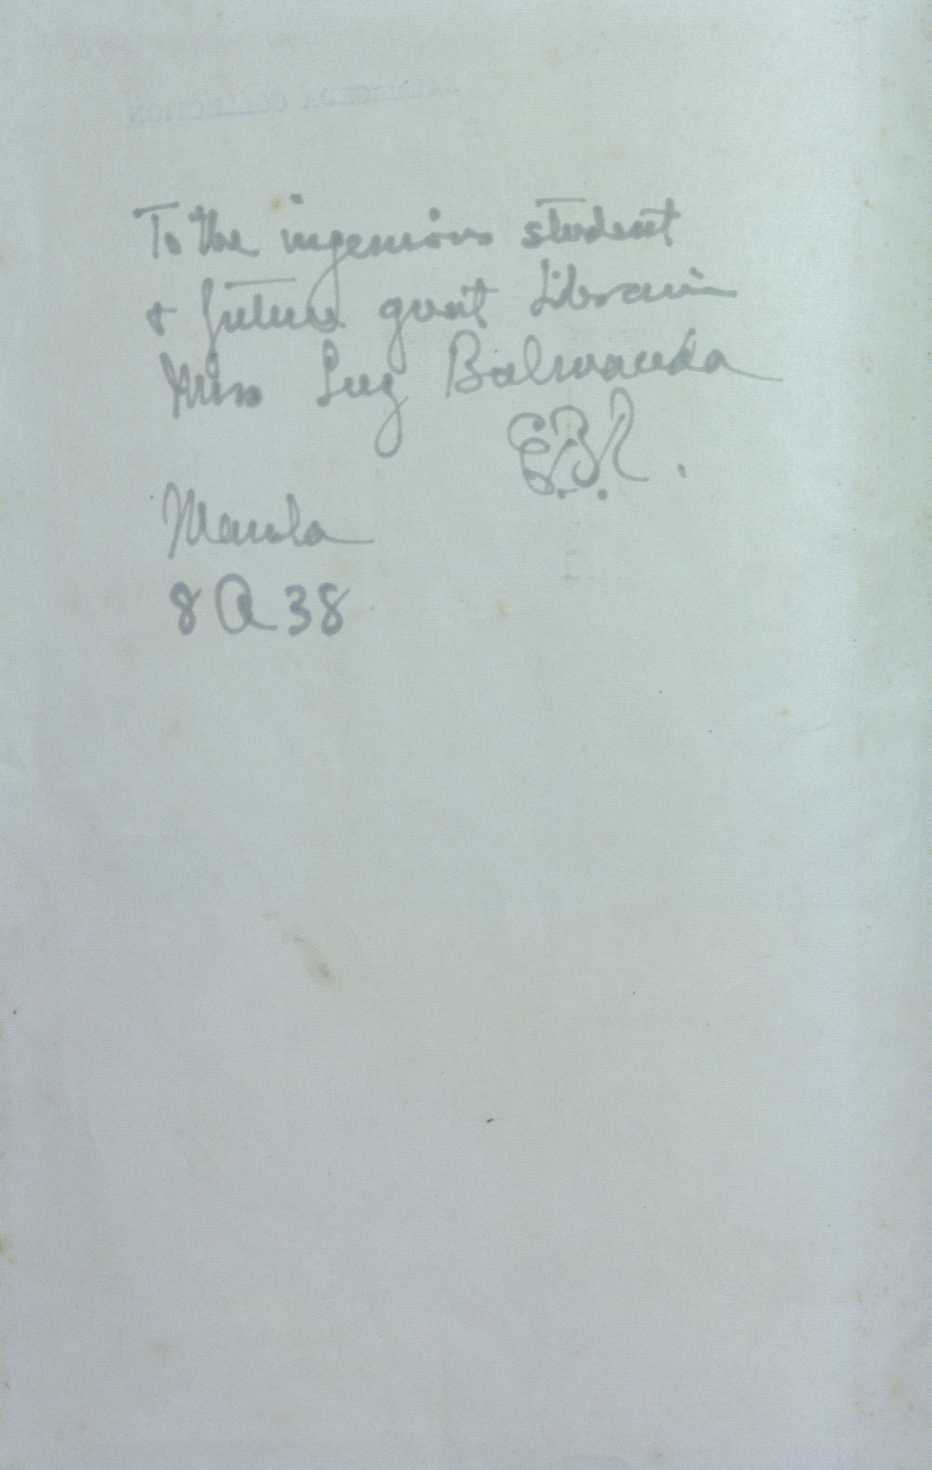 To the ingenious student
& future great Librarian
Miss Luz Balmaceda
E.B.R.
Manila
8 A 38
COLLECTION